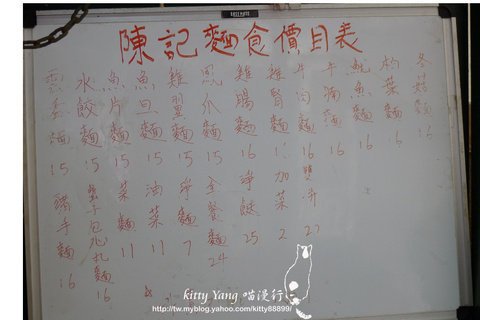 陳記麵食價目表
雲吞麵 15
水餃麵 15
魚片麵 15
魚旦麵 15
雞翼麵 15
鳳爪麵 15
雞腸麵 16
雞腎麵
牛肉麵 16
牛腩麵 16
魷魚麵 16
麵 16
冬菇麵 16
豬手麵 16
包 麵 16
菜麵 11
油菜 11
淨麵 7
全餐麵 24
淨餃 25
加菜 2
雙併 22
kitty Yang 喵漫行
http://tw.myblog.yahoo.com/kitty88899/